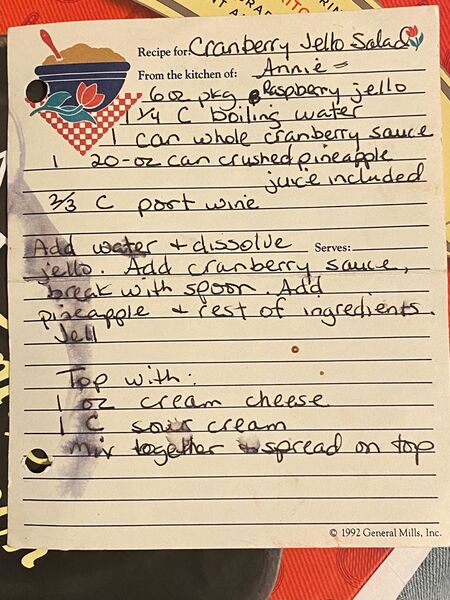 Recipe for: Cranberry Jello Salad
From the kitchen of: Annie
6 oz pkg. Raspberry jello
1 1/4 C boiling water
1 can whole cranberry sauce
1 20-oz can crushed pineapple
juice included
2/3 C port wine
Add water + dissolve Serves:
jello. Add cranberry sauce,
break with spoon. Add
pineapple + rest of ingredients.
Jell
Top with:
1 oz cream cheese
1 C sour cream
mix together + spread on top
© 1992 General Mills, Inc.